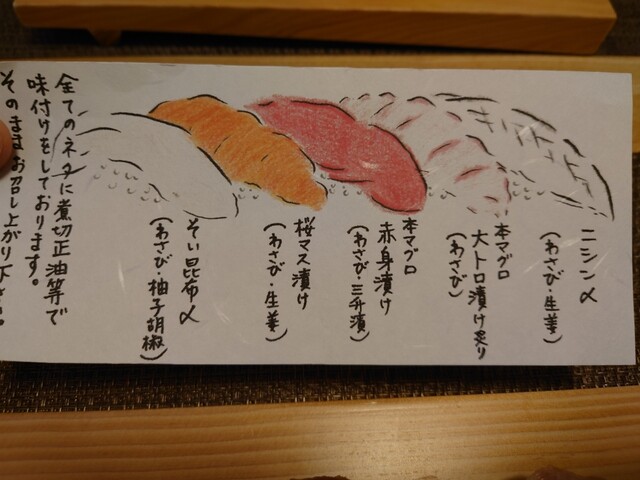 ニシン〆
(わさび・生姜)
本マグロ
大トロ漬け炙り
(わさび)
本マグロ
赤身漬け
(わさび・三升漬)
桜マス漬け
(わさび・生姜)
そい昆布〆
(わさび・柚子胡椒)
全てのネタに煮切正油等で
味付けをしております。
そのままお召し上がり下さい。